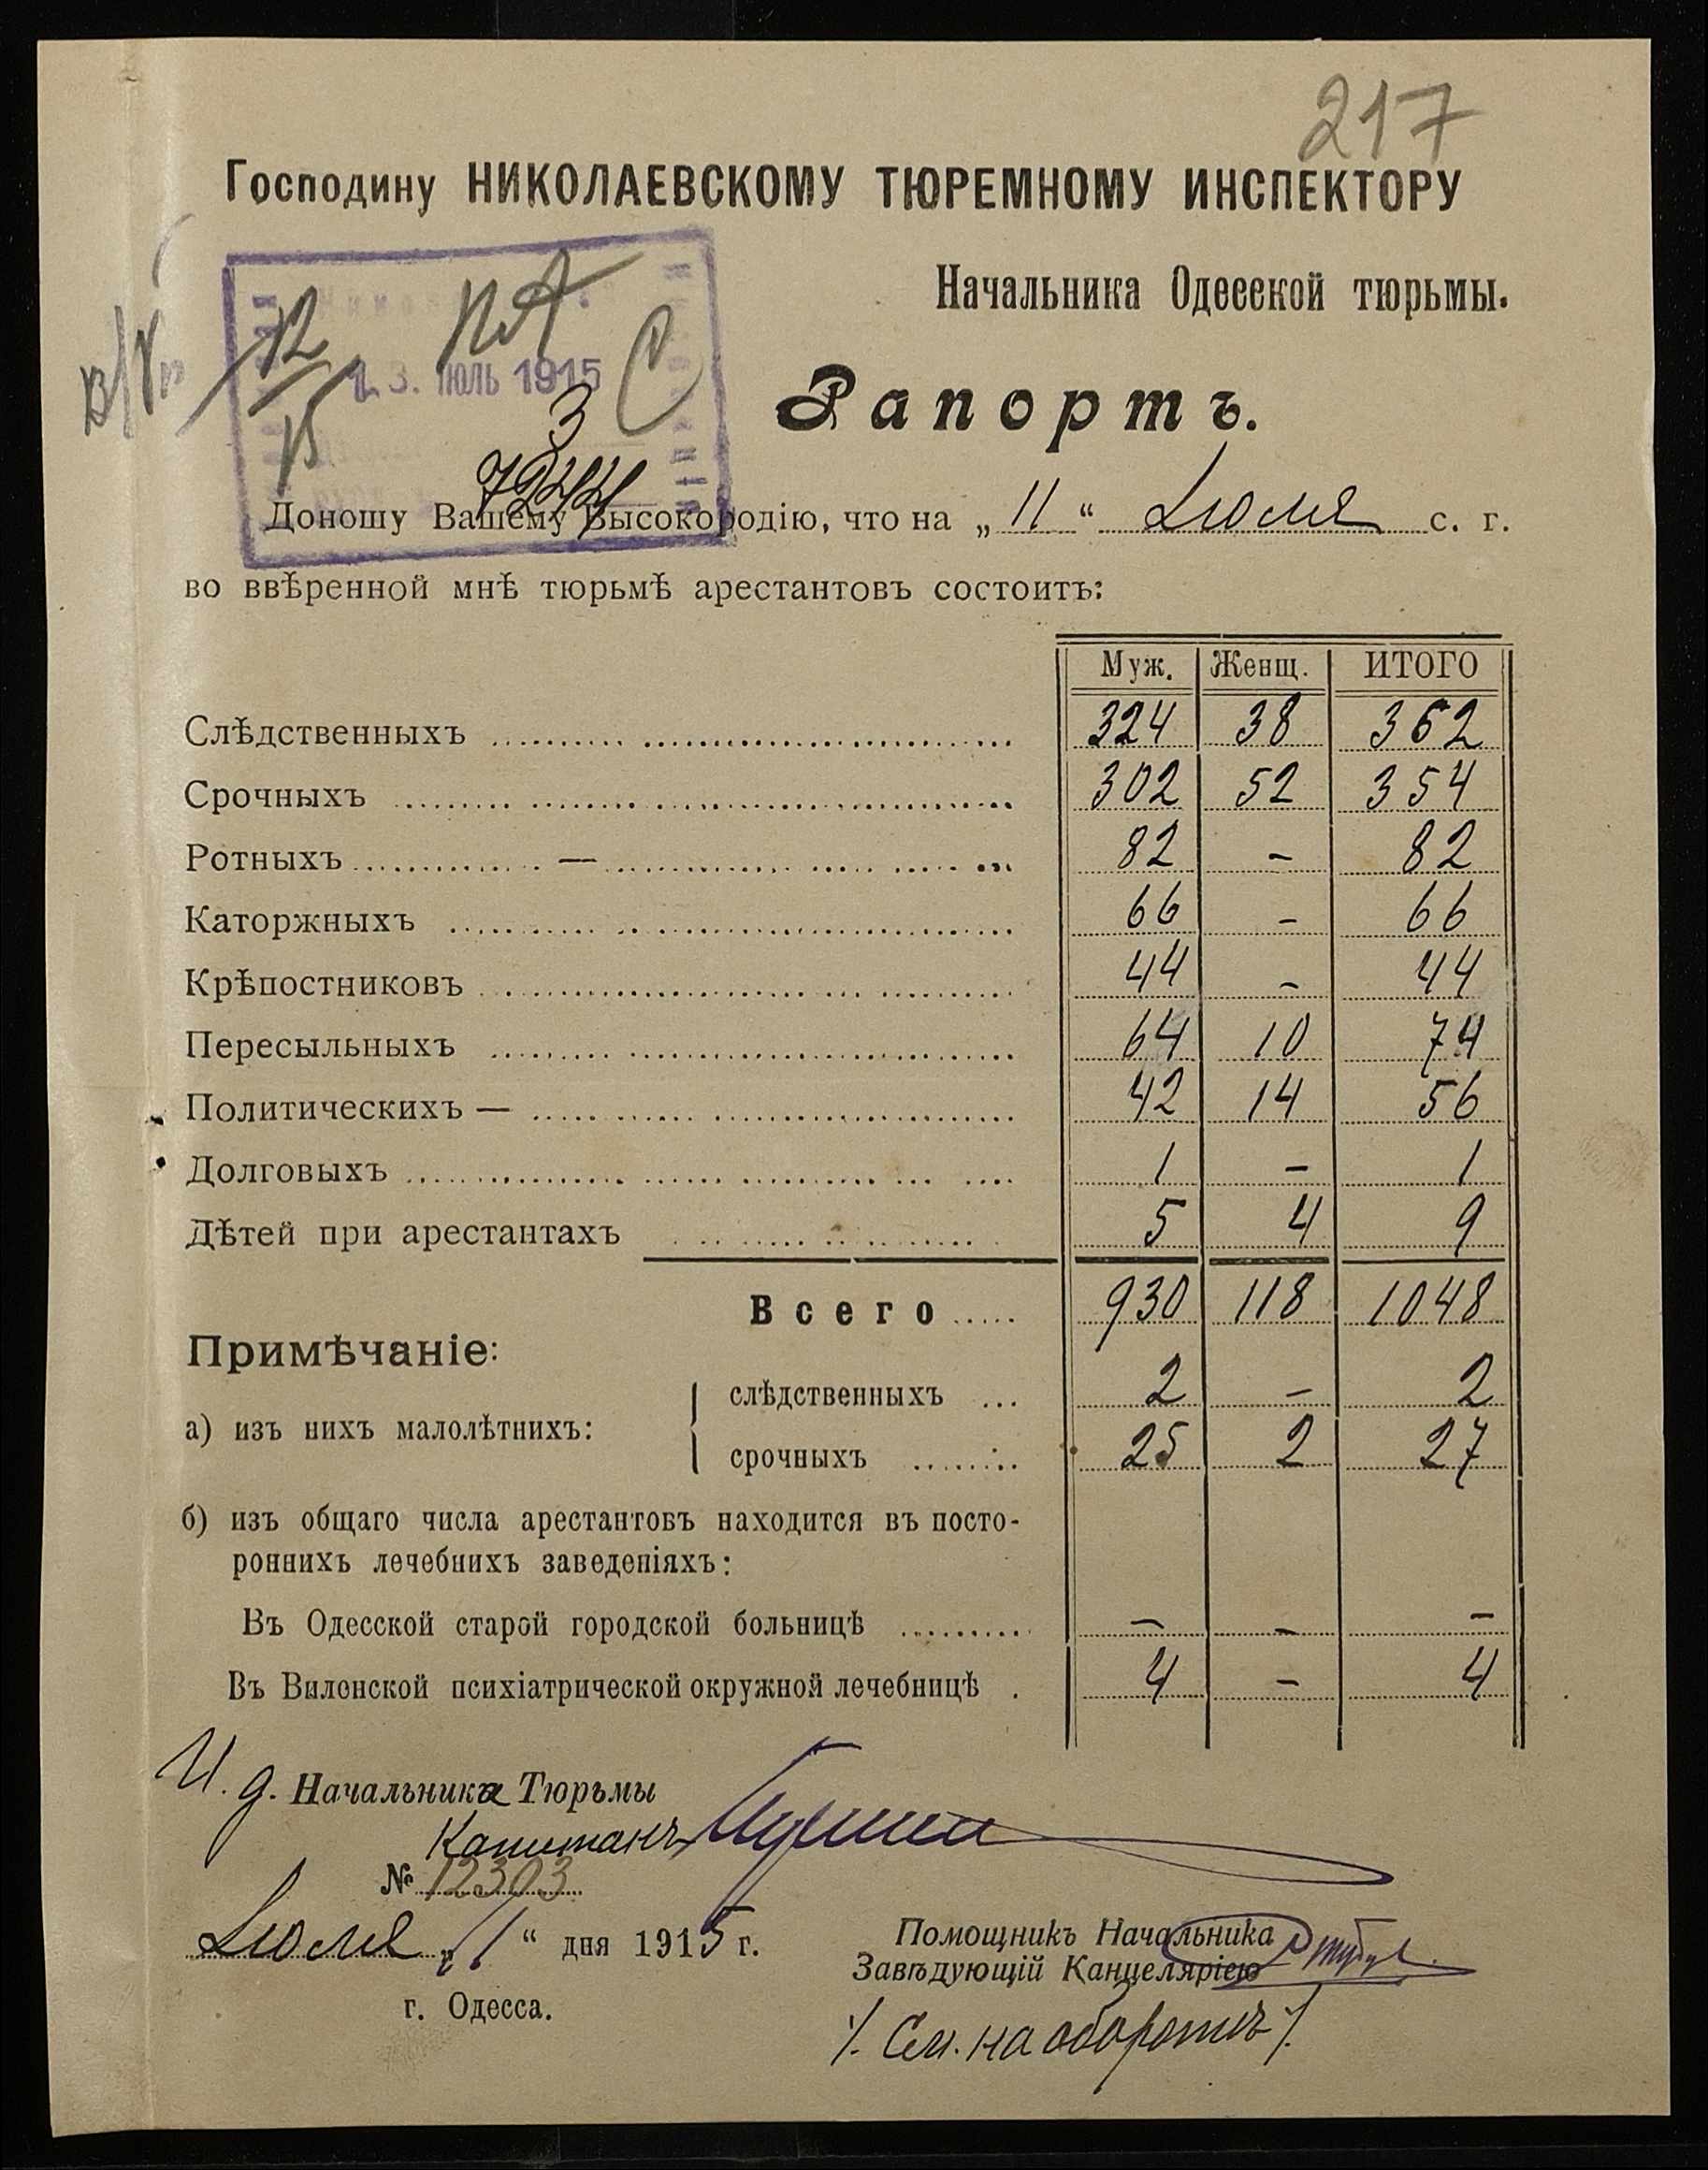 217
Господину НИКОЛАЕВСКОМУ ТЮРЕМНОМУ ИНСПЕКТОРУ
Начальника Одесской тюрьмы.
12 ПА
3. ИЮЛЬ 1915
15
3
7244
Рапортъ.
Доношу Вашему Высокородію, что на „11“ Іюля с. г.
во ввѣренной мнѣ тюрьмѣ арестантовъ состоитъ:
Муж. Женщ. ИТОГО
Слѣдственныхъ 324 38 362
Срочныхъ 302 52 354
Ротныхъ — 82 - 82
Каторжныхъ 66 - 66
Крѣпостниковъ 44 - 44
Пересыльныхъ 64 10 74
Политическихъ — 42 14 56
Долговыхъ 1 - 1
Дѣтей при арестантахъ 5 4 9
Всего 930 118 1048
Примѣчаніе:
а) изъ нихъ малолѣтнихъ:
слѣдственныхъ 2 - 2
срочныхъ 25 2 27
б) изъ общаго числа арестантовъ находится въ посто-
роннихъ лечебнихъ заведеніяхъ:
Въ Одесской старой городской больницѣ - - -
Въ Виленской психіатрической окружной лечебницѣ 4 - 4
И. д. Начальника Тюрьмы
Капитанъ
№ 12303
Іюля „11“ дня 1915 г.
г. Одесса.
Помощникъ Начальника
Завѣдующій Канцеляріею
/. См. на оборотѣ /.